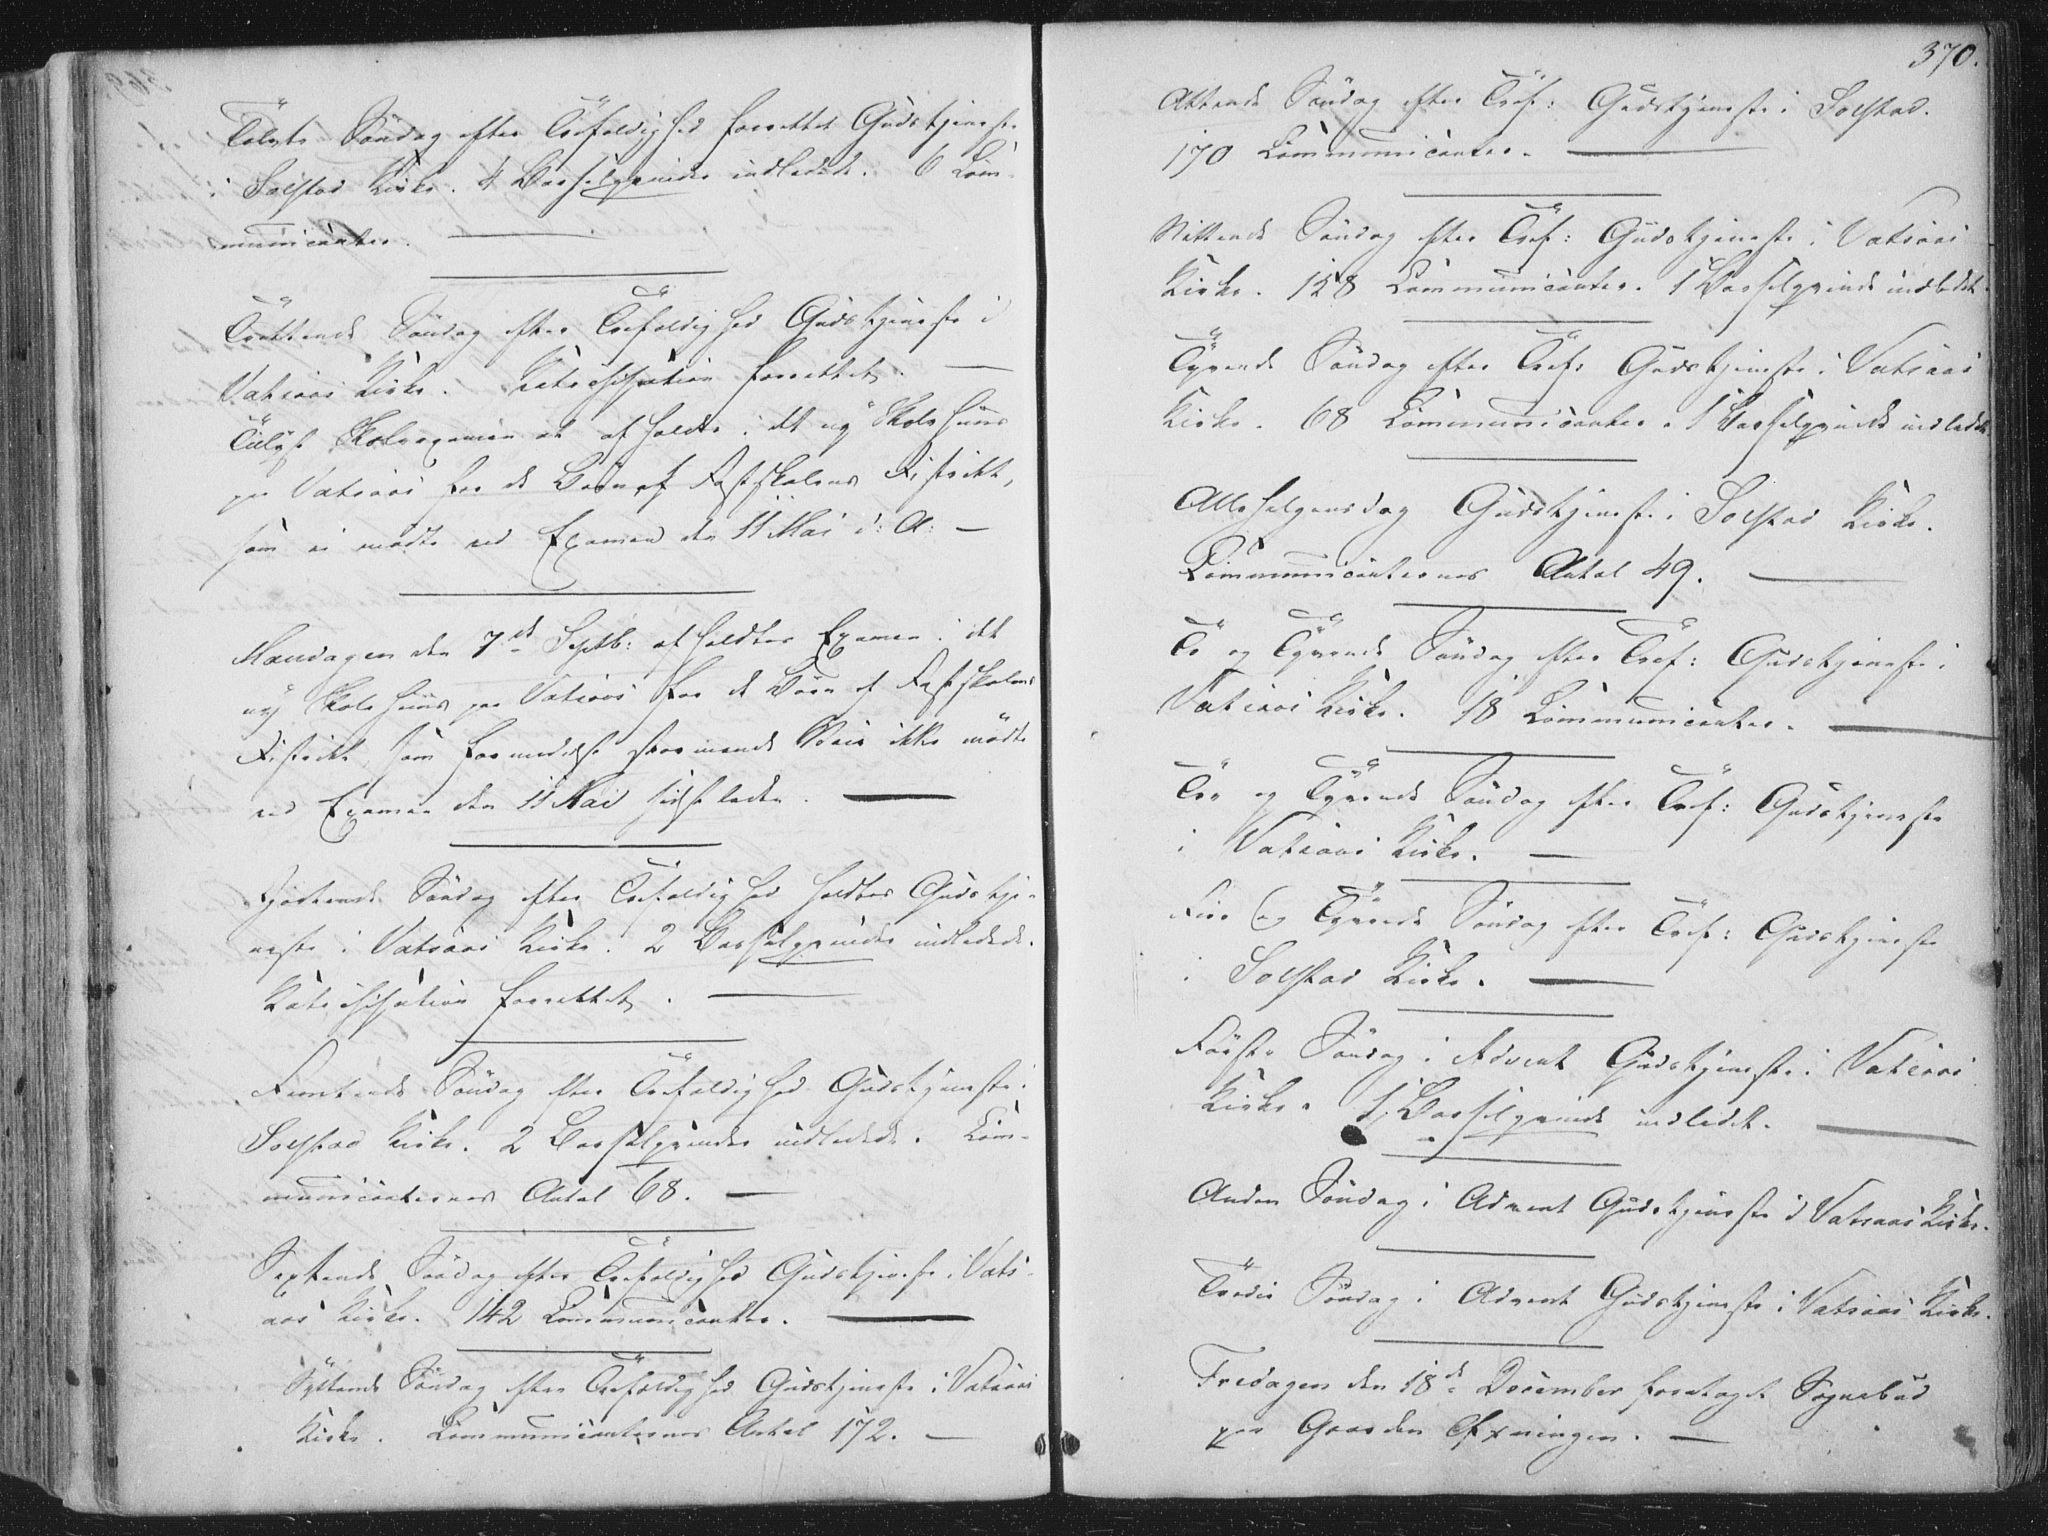 Tolvte Søndag efter Trefoldighed forrettet Gudstjeneste
i Solstad Kirke. 4 Barselqvinder indledede. 6 Com-
municanter.
Trettende Søndag efter Trefoldighed Gudstjeneste i
Vatsaas Kirke. Katechisation forrettet.
Tillyst Skoleexamen at afholdes i det ny Skolehuus
paa Vatsaas for de Børn af Fastskolens District,
som ei mødte ved Examen den 11 Mai d: A:
Mandagen den 7de Septb: afholdtes Examen i det
ny Skolehuus paa Vatsaas for de Børn af Fastskolens
District, som formedelst stormende Veir ikke mødte
ved Examen den 11 Mai sidstleden.
Fjortende Søndag efter Trefoldighed holdtes Gudstje-
neste i Vatsaas Kirke. 2 Barselqvinder indledede.
Katechisation forrettet.
Femtende Søndag efter Trefoldighed Gudstjeneste i
Solstad Kirke. 2 Barselqvinder indledede. Com-
municanternes Antal 68.
Sextende Søndag efter Trefoldighed Gudstjeneste i Vats-
aas Kirke. 142 Communicanter.
Syttende Søndag efter Trefoldighed Gudstjeneste i Vatsaas
Kirke. Communicanternes Antal 172.
370.
Attende Søndag efter Tref: Gudstjeneste i Solstad.
170 Communicanter.
Nittende Søndag efter Tref: Gudstjeneste i Vatsaas
Kirke. 158 Communicanter. 1 Barselqvinde indledet.
Tyvende Søndag efter Tref: Gudstjeneste i Vatsaas
Kirke. 68 Communicanter. 1 Barselqvinde indledet.
Allehelgensdag Gudstjeneste i Solstad Kirke.
Communicanternes Antal 49.
To og Tyvende Søndag efter Tref: Gudstjeneste i
Vatsaas Kirke. 18 Communicanter.
Tre og Tyvende Søndag efter Tref: Gudstjeneste
i Vatsaas Kirke.
Fire og Tyvende Søndag efter Tref: Gudstjeneste
i Solstad Kirke.
Første Søndag i Advent Gudstjeneste i Vatsaas
Kirke. 1 Barselqvinde indledet.
Anden Søndag i Advent Gudstjeneste i Vatsaas Kirke.
Tredie Søndag i Advent Gudstjeneste i Vatsaas Kirke.
Fredagen den 18de December foretaget Sognebud
paa Gaarden